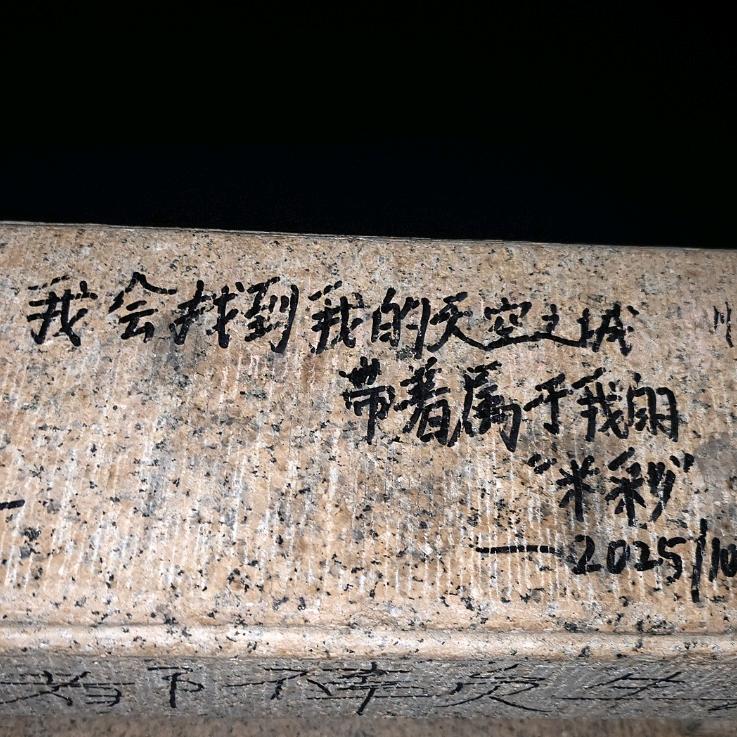 我会找到我的天空之城
带着属于我的
“米彩”
——2025/10